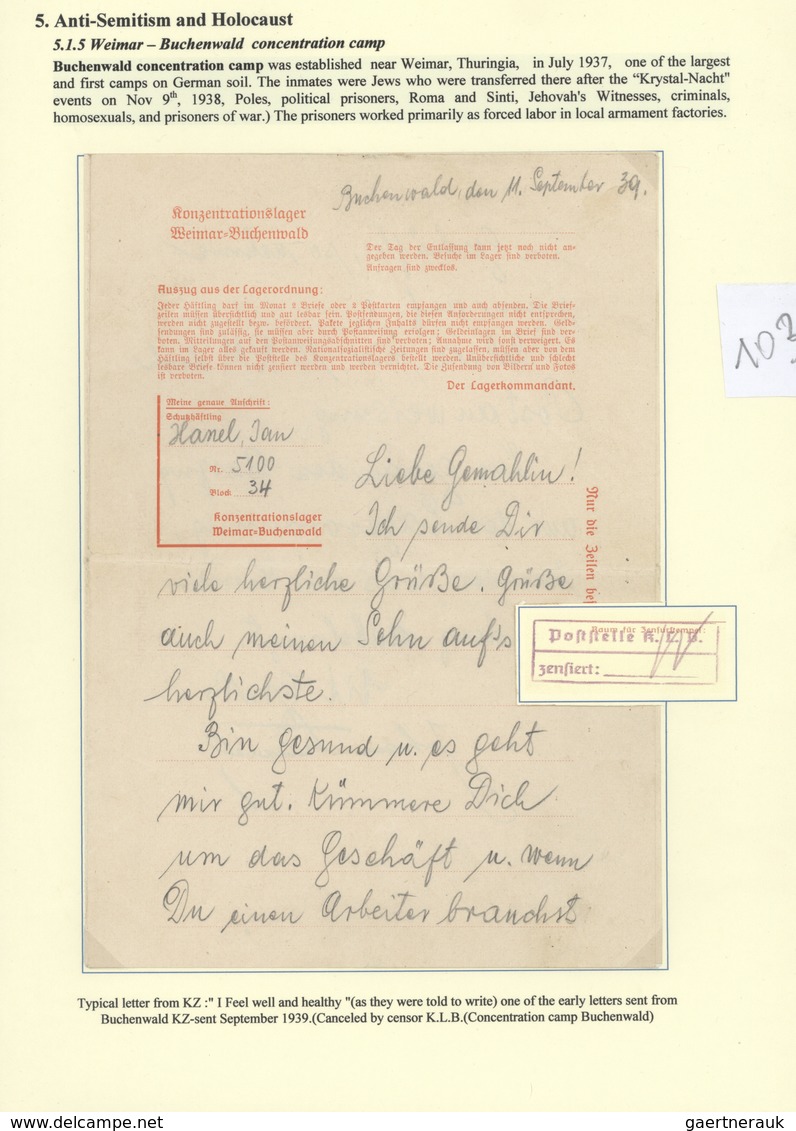 5. Anti-Semitism and Holocaust
5.1.5 Weimar – Buchenwald concentration camp
Buchenwald concentration camp was established near Weimar, Thuringia, in July 1937, one of the largest
and first camps on German soil. The inmates were Jews who were transferred there after the “Krystal-Nacht"
events on Nov 9th, 1938, Poles, political prisoners, Roma and Sinti, Jehovah's Witnesses, criminals,
homosexuals, and prisoners of war.) The prisoners worked primarily as forced labor in local armament factories.
Buchenwald, den 11. September 39.
Konzentrationslager
Weimar=Buchenwald
Der Tag der Entlassung kann jetzt noch nicht an=
gegeben werden. Besuche im Lager sind verboten.
Anfragen sind zwecklos.
Auszug aus der Lagerordnung:
Jeder Häftling darf im Monat 2 Briefe oder 2 Postkarten empfangen und auch absenden. Die Brief=
zeilen müssen übersichtlich und gut lesbar sein. Postsendungen, die diesen Anforderungen nicht entsprechen,
werden nicht zugestellt bezw. befördert. Pakete jeglichen Inhalts dürfen nicht empfangen werden. Geld=
sendungen sind zulässig, sie müssen aber durch Postanweisung erfolgen; Geldeinlagen im Brief sind ver=
boten. Mitteilungen auf den Postanweisungsabschnitten sind verboten; Annahme wird sonst verweigert. Es
kann im Lager alles gekauft werden. Nationalsozialistische Zeitungen sind zugelassen, müssen aber von dem
Häftling selbst über die Poststelle des Konzentrationslagers bestellt werden. Unübersichtliche und schlecht
lesbare Briefe können nicht zensiert werden und werden vernichtet. Die Zusendung von Bildern und Fotos
ist verboten.
Der Lagerkommandant.
103
Meine genaue Anschrift:
Schutzhäftling
Hanel, Jan
Nr. 5100
Block 34
Konzentrationslager
Weimar=Buchenwald
Nur die Zeilen
Liebe Gemahlin!
Ich sende Dir
viele herzliche Grüße. Grüße
auch meinen Sohn auf's
herzlichste.
Raum für Zensurstempel:
Poststelle K. L. B.
zensiert:
Bin gesund u. es geht
mir gut. Kümmere Dich
um das Geschäft u. wenn
Du einen Arbeiter brauchst
Typical letter from KZ :" I Feel well and healthy "(as they were told to write) one of the early letters sent from
Buchenwald KZ-sent September 1939.(Canceled by censor K.L.B.(Concentration camp Buchenwald)
www.delcampe.net
gaertnerauk